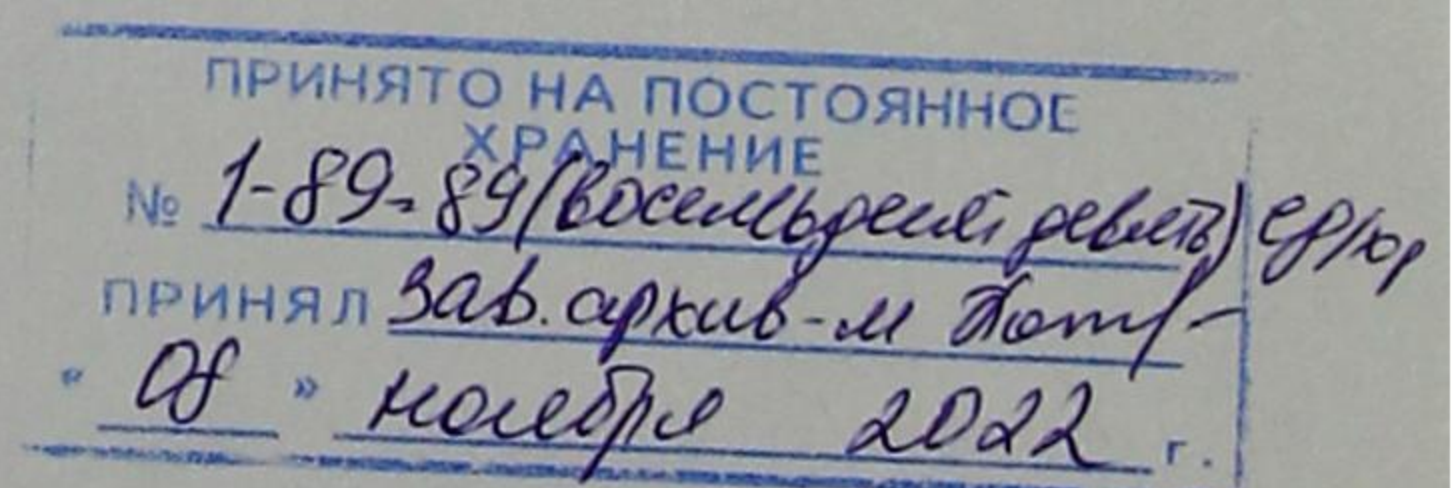 ПРИНЯТО НА ПОСТОЯННОЕ
ХРАНЕНИЕ
№ 1-89 = 89 (восемьдесят девять) ед/хр
ПРИНЯЛ Зав. архив-м
" 08 " ноября 2022 г.